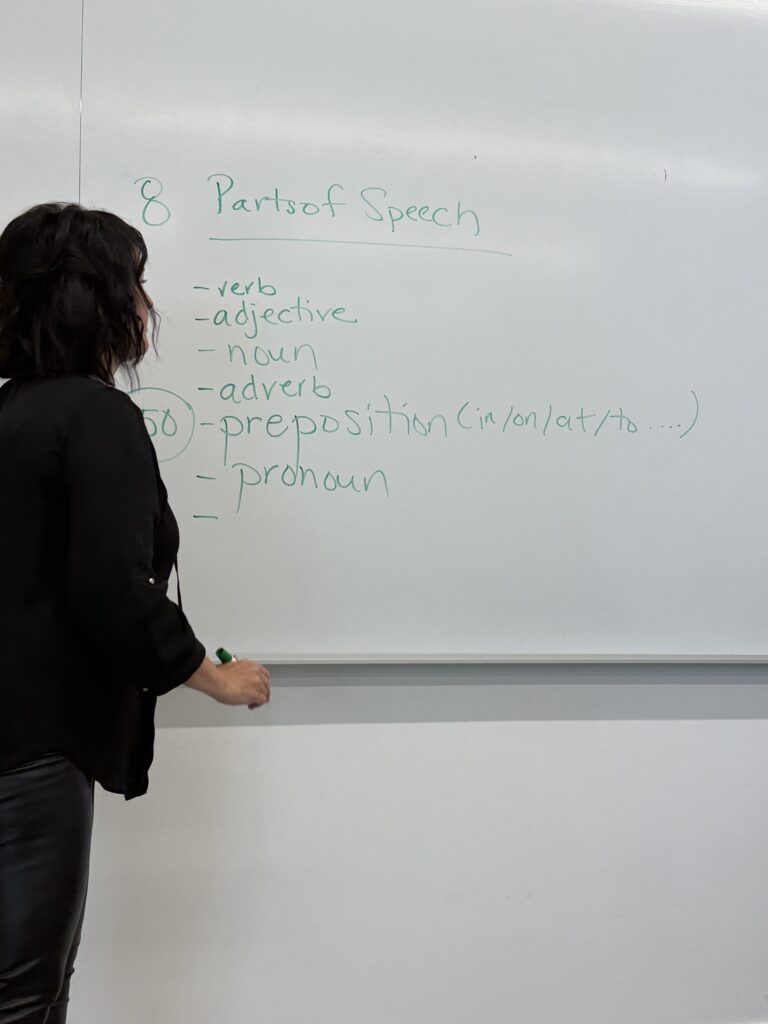 8 Parts of Speech
- verb
- adjective
- noun
- adverb
50 - preposition (in/on/at/to ....)
- pronoun
-